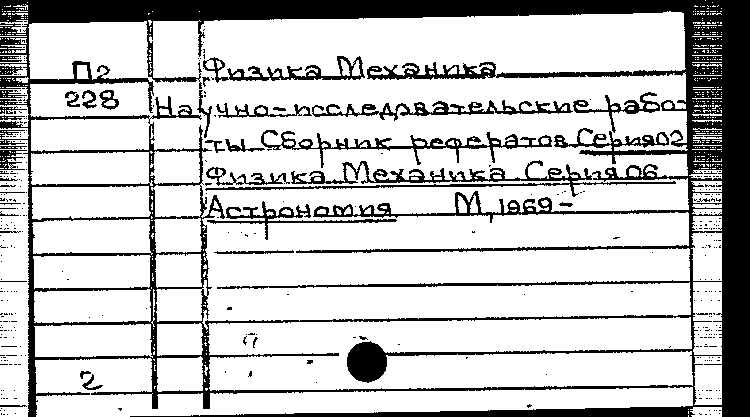 П2 Физика Механика
228 Научно-исследовательские рабо-
ты Сборник рефератов Серия 02
Физика Механика Серия 06
Астрономия М, 1969-
2